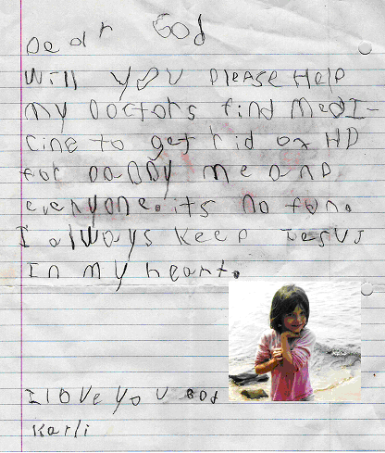 Dear God
Will you please Help
my Doctors find Medi-
cine to get rid of HD
for daddy me and
everyone. its no fun.
I always keep Jesus
In my heart.
I love you God
Karli